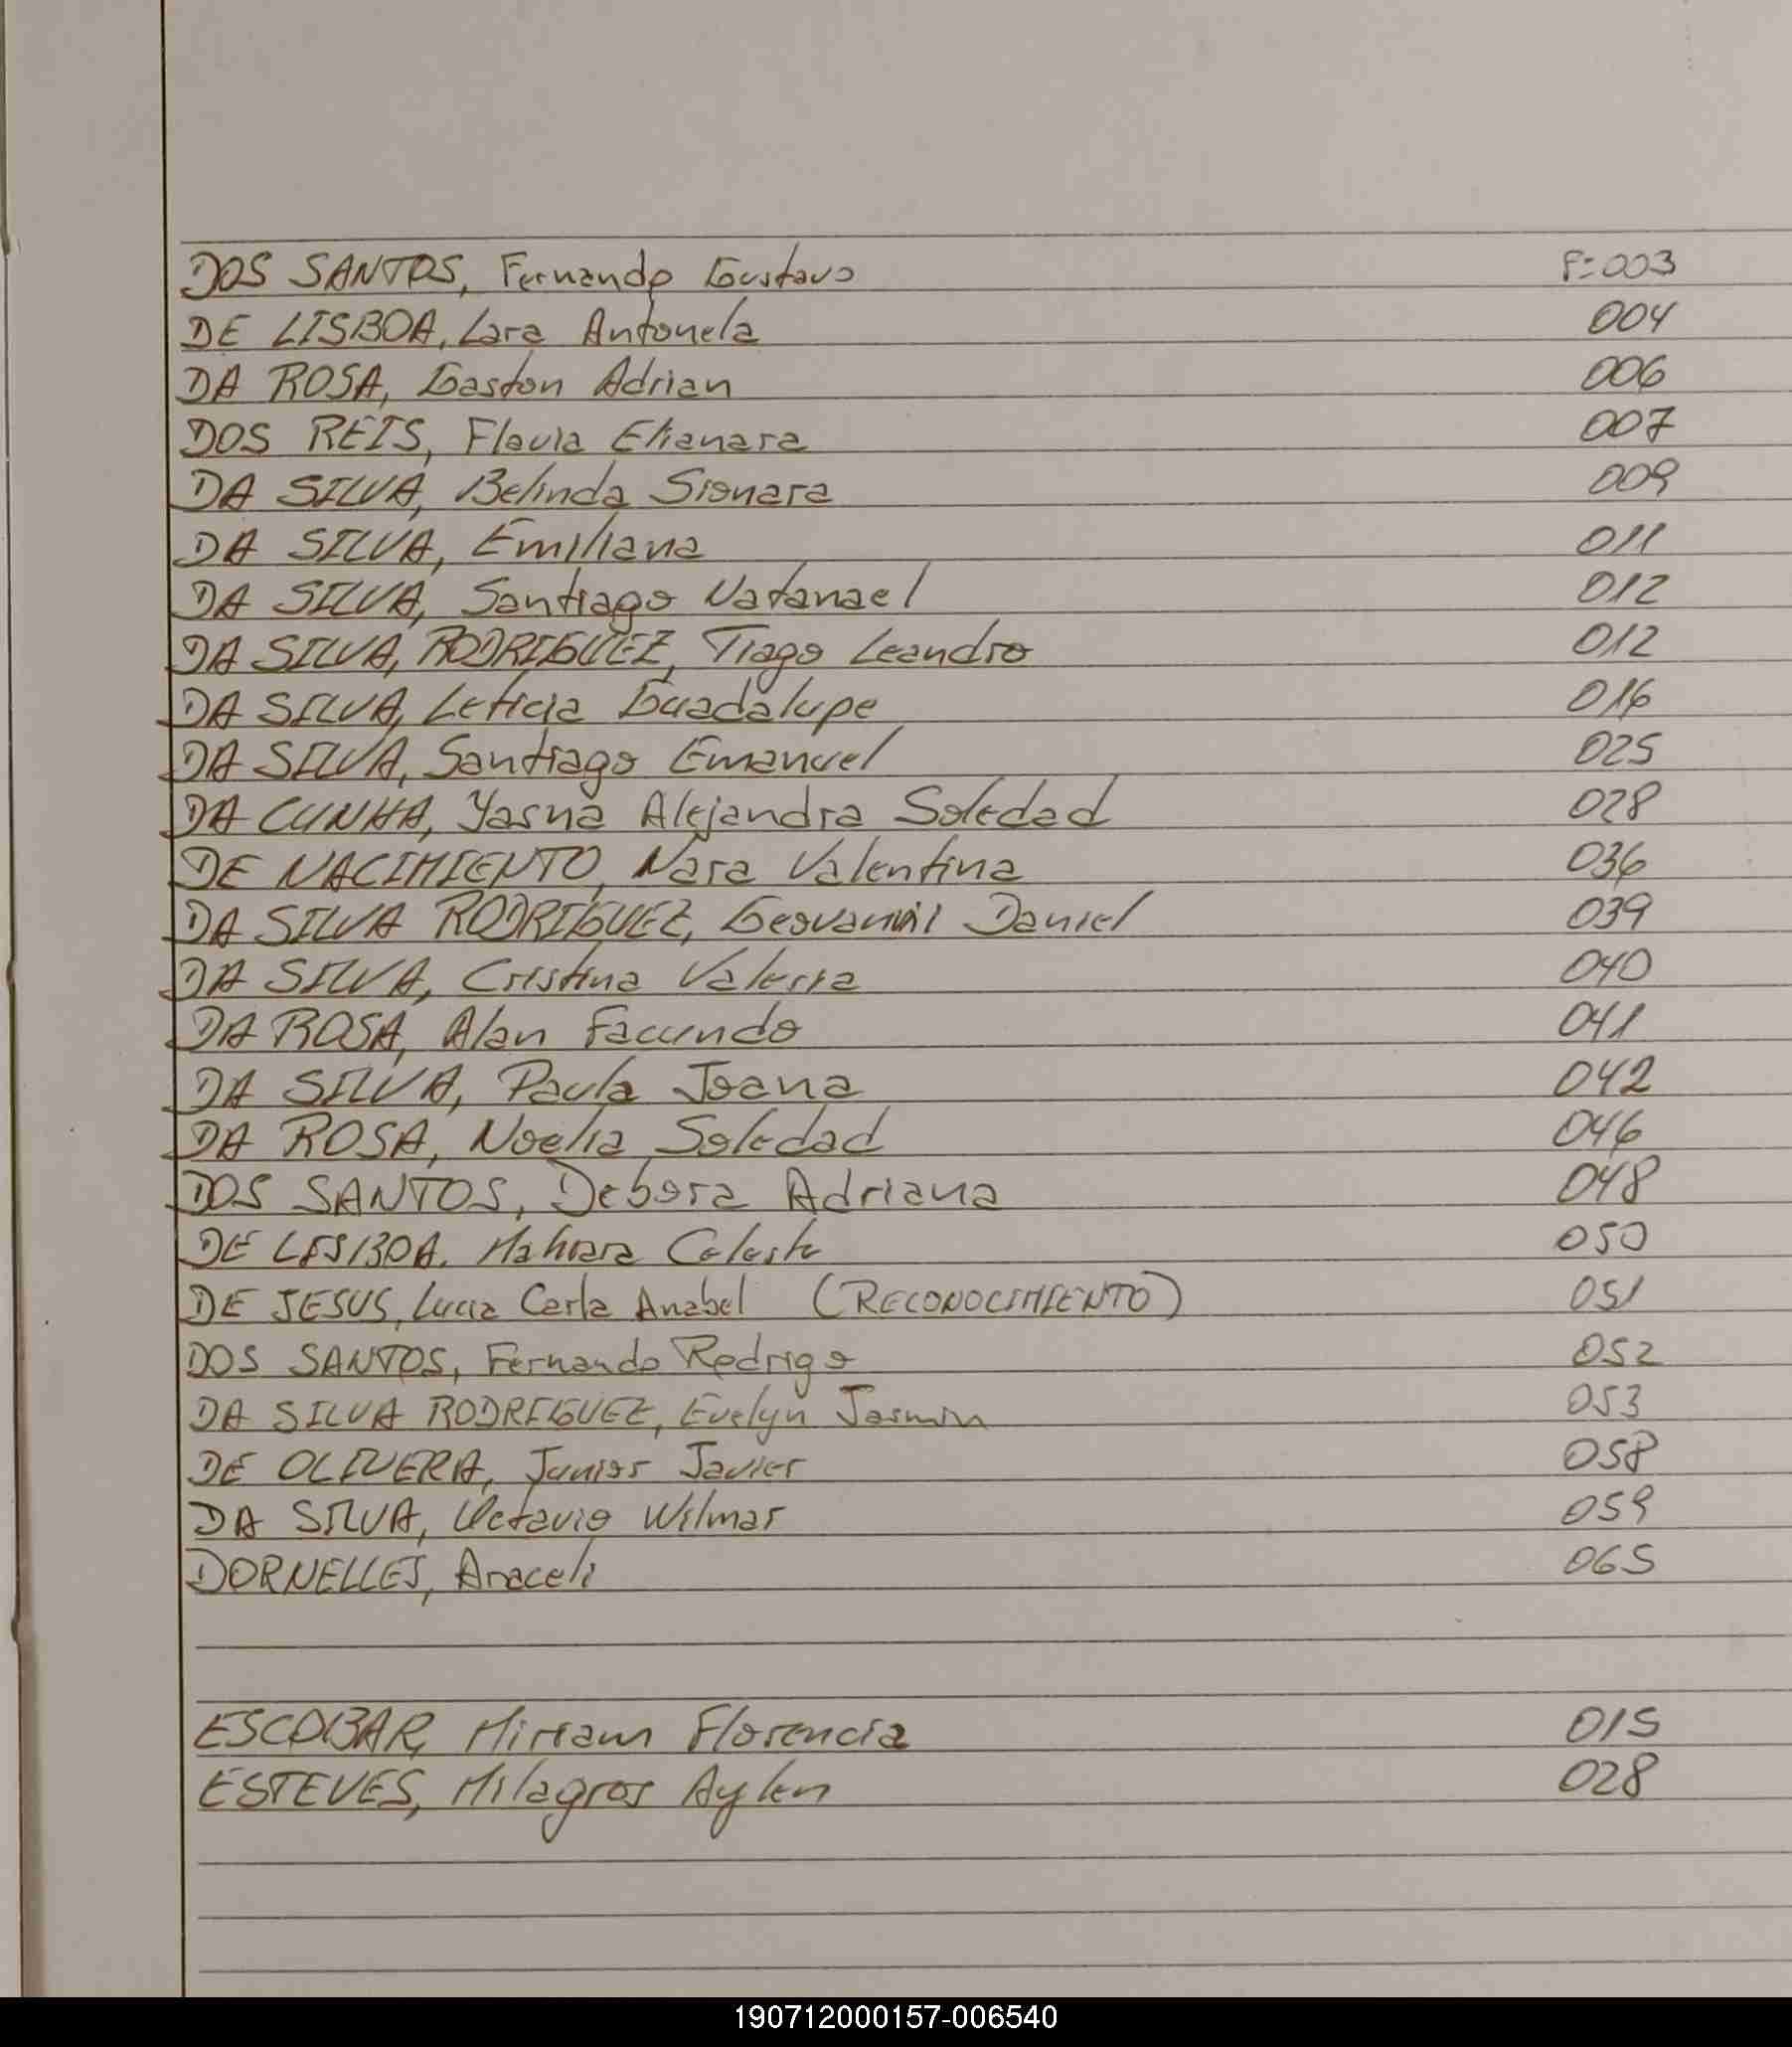 DOS SANTOS, Fernando Gustavo F=003
DE LISBOA, Lara Antonela 004
DA ROSA, Gaston Adrian 006
DOS REIS, Flavia Elianara 007
DA SILVA, Belinda Sionara 009
DA SILVA, Emiliana 011
DA SILVA, Santiago Natanael 012
DA SILVA, RODRIGUEZ, Tiago Leandro 012
DA SILVA, Leticia Guadalupe 016
DA SILVA, Santiago Emanuel 025
DA CUNHA, Yasna Alejandra Soledad 028
DE NACIMIENTO, Nara Valentina 036
DA SILVA RODRIGUEZ, Daniel 039
DA SILVA, Cristina Valeria 040
DA ROSA, Alan Facundo 041
DA SILVA, Paula Joana 042
DA ROSA, Noelia Soledad 046
DOS SANTOS, Debora Adriana 048
DE LESIBOA, Celeste 050
DE JESUS, Lucia Carla Anabel (RECONOCIMIENTO) 051
DOS SANTOS, Fernando Rodrigo 052
DA SILVA RODRIGUEZ, Evelyn Jasmin 053
DE OLIVERA, Junior Javier 058
DA SILVA, Octavio Wilmar 059
DORNELLES, Araceli 065
ESCOBAR, Miriam Florencia 015
ESTEVES, Milagros Aylen 028
190712000157-006540